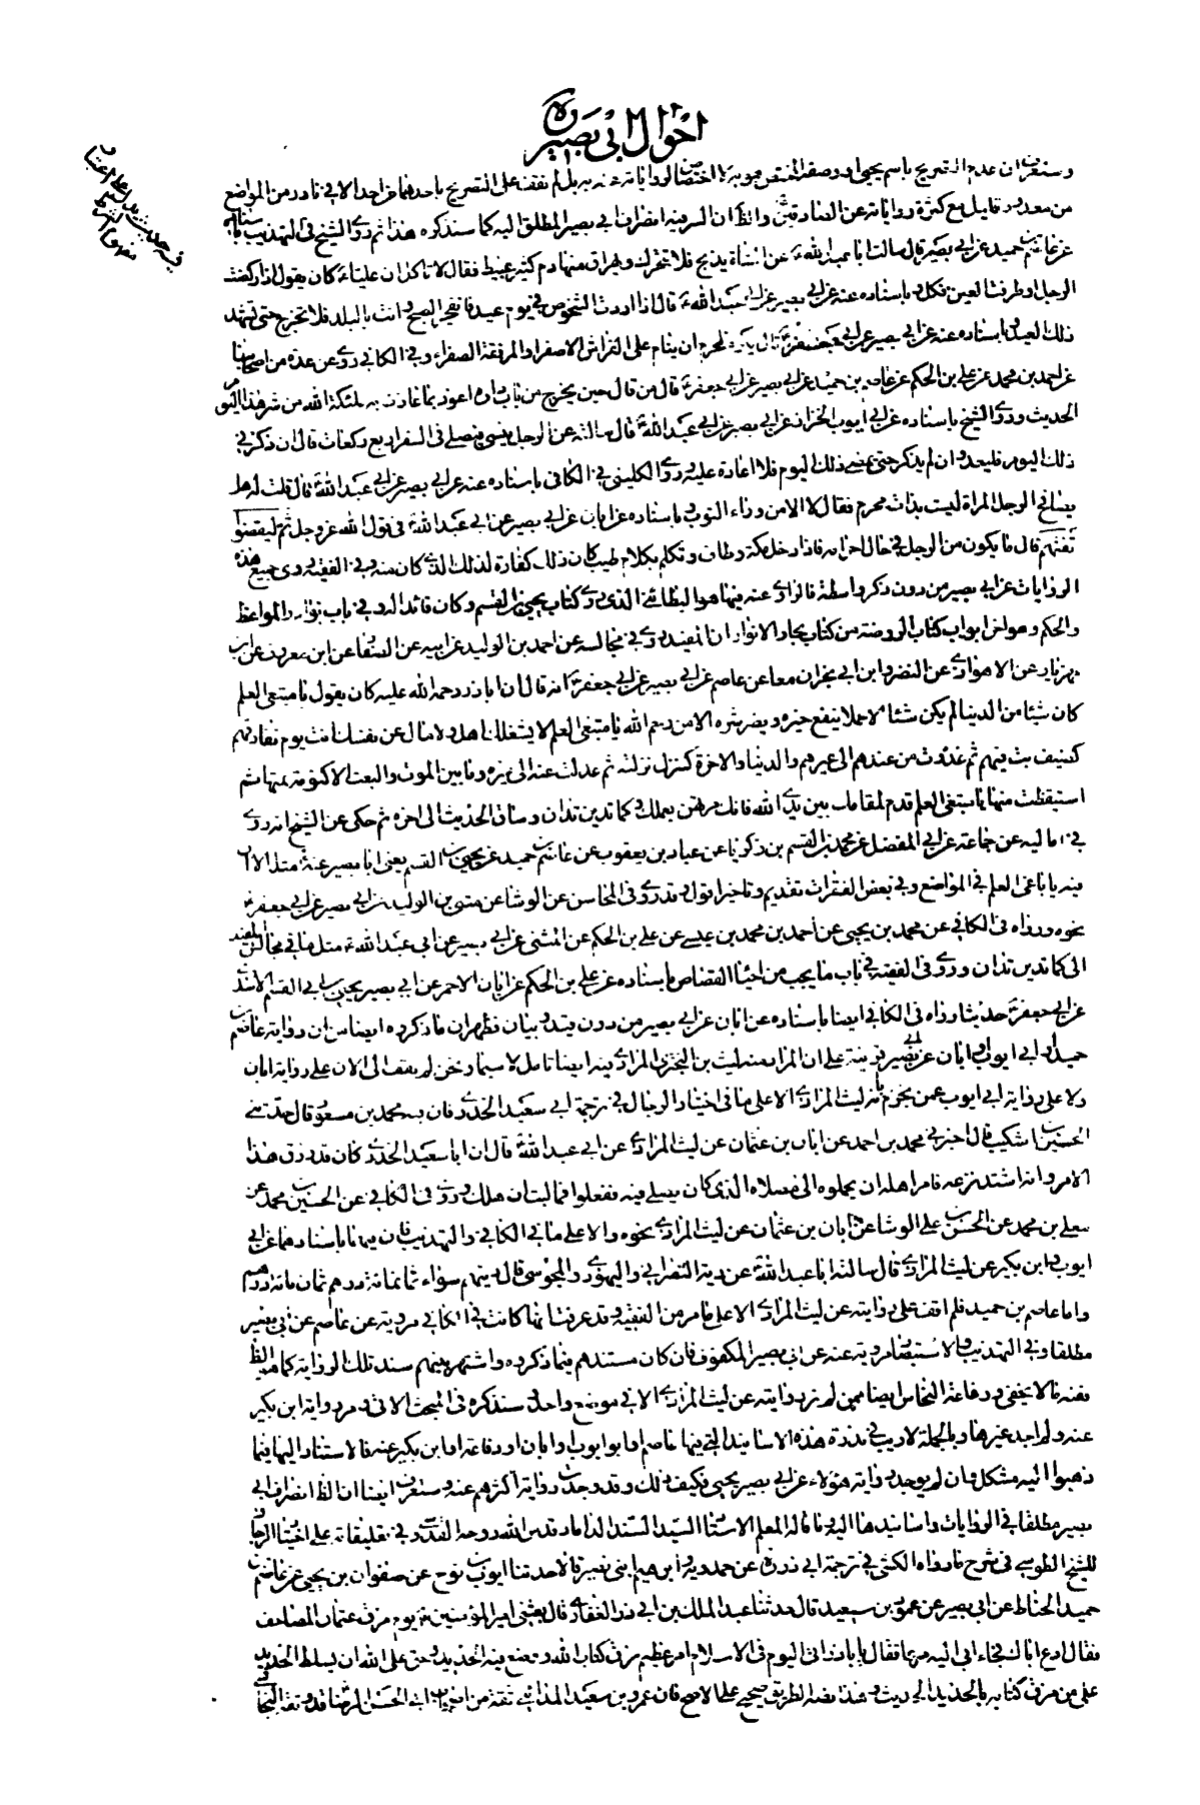 احوال ابي بصير
وستعرف ان عدم التصريح باسم يحيى او وصفه المختص به لا اختصاص الروايات به بل لم نقف على التصريح باحدهما في احد الا في نادر من المواضع
من معدود قليل مع كثرة رواياته عن الصادق
عن عاصم بن حميد عن ابي بصير قال سالت ابا عبد الله ع عن الشاة يذبح فلا تتحرك ويهراق منها دم كثير عبيط فقال لا تاكل ان عليا ع كان يقول اذا ركضت
الرجل او طرفت العين فكل وباسناده عنه عن ابي بصير عن ابي عبد الله ع قال اذا اردت الشخوص في يوم عيد فانفجر الصبح وانت بالبلد فلا تخرج حتى تشهد
ذلك العيد وباسناده عنه عن ابي بصير عن ابي جعفر ع قال يكره للمحرم ان ينام على الفراش الاصفر والمرفقة الصفراء وفي الكافي روى عن عدة من اصحابنا
عن احمد بن محمد عن علي بن الحكم عن عاصم بن حميد عن ابي بصير عن ابي جعفر ع قال من قال حين يخرج من باب داره اعوذ بما عاذت به ملئكة الله من شر هذا اليوم
الحديث وروى الشيخ باسناده عن ابي ايوب الخزاز عن ابي بصير عن ابي عبد الله ع قال سالته عن الرجل ينسى فيصلي في السفر اربع ركعات قال ان ذكر في
ذلك اليوم فليعد وان لم يذكر حتى يمضي ذلك اليوم فلا اعادة عليه وروى الكليني في الكافي باسناده عنه عن ابي بصير عن ابي عبد الله ع قال قلت له هل
يصافح الرجل المراة ليست بذات محرم فقال لا الا من وراء الثوب وباسناده عن ابان عن ابي بصير عن ابي عبد الله ع في قول الله عز وجل ثم ليقضوا
تفثهم قال ما يكون من الرجل في حال احرامه فاذا دخل مكة وطاف وتكلم بكلام طيب كان ذلك كفارة لذلك الذي كان منه وفي الفقيه روى جميع هذه
الروايات عن ابي بصير من دون ذكر واسطة فالراوي عنه فيها هو البطائني الذي روى كتاب يحيى بن القسم وكان قائدا له وفي باب نوادر المواعظ
والحكم وهو اخر ابواب كتاب الروضة من كتاب بحار الانوار ان المفيد روى في مجالسه عن احمد بن الوليد عن ابيه عن الصفار عن ابن معروف عن ابن
مهزيار عن الاهوازي عن النضر وابن ابي نجران معا عن عاصم عن ابي بصير عن ابي جعفر ع انه قال ان ابا ذر رحمة الله عليه كان يقول يا مبتغي العلم
كان شيئا من الدنيا لم يكن شيئا الا عملا ينفع خيره ويضر شره الا من رحم الله يا مبتغي العلم لا يشغلك اهل ولا مال عن نفسك انت يوم تفارقهم
كضيف بت فيهم ثم غدوت من عندهم الى غيرهم والدنيا والاخرة كمنزل نزلته ثم عدلت عنه الى غيره وما بين الموت والبعث الا كنومة نمتها ثم
استيقظت منها يا مبتغي العلم قدم لمقامك بين يدي الله فانك مرتهن بعملك وكما تدين تدان وساق الحديث الى اخره ثم حكى عن الشيخ انه روى
في اماليه عن جماعة عن ابي المفضل عن محمد بن القسم بن زكريا عن عباد بن يعقوب عن عاصم بن حميد عن يحيى بن القسم يعني ابا بصير عنه ع مثله الا ان
فيه يا باغي العلم في المواضع وفي بعض الفقرات تقديم وتاخير اقول وقد روى في المحاسن عن الوشا عن مثنى بن الوليد عن ابي بصير عن ابي جعفر ع
نحوه ورواه في الكافي عن محمد بن يحيى عن احمد بن محمد بن عيسى عن علي بن الحكم عن المثنى عن ابي بصير عن ابي عبد الله ع مثل ما في مجالس المفيد
الى كما تدين تدان وروى في الفقيه في باب ما يجب من احياء القصاص باسناده عن علي بن الحكم عن ابان الاحمر عن ابي بصير يحيى بن ابي القسم الاسدي
عن ابي جعفر ع حديثا رواه في الكافي ايضا باسناده عن ابان عن ابي بصير من دون قيد وبيان فظهر ان ما ذكروه ايضا من ان رواية عاصم بن
حميد او ابي ايوب او ابان عن ابي بصير قرينة على ان المراد منه ليث بن البختري المرادي فيه ايضا تامل لا سيما ونحن لم نقف الى الان على رواية ابان
ولا على رواية ابي ايوب عمن يجزم بانه ليث المرادي الا على ما في اختيار الرجال في ترجمة ابي سعيد الخدري فان به محمد بن مسعود قال حدثني
الحسين بن اشكيب قال اخبرني محمد بن احمد عن ابان بن عثمان عن ليث المرادي عن ابي عبد الله ع قال ان ابا سعيد الخدري كان قد رزق هذا
الامر وانه اشتد نزعه فامر اهله ان يحملوه الى مصلاه الذي كان يصلي فيه ففعلوا فما لبث ان هلك وروى في الكافي عن الحسين بن محمد عن
معلى بن محمد عن الحسن بن علي الوشا عن ابان بن عثمان عن ليث المرادي نحوه والا على ما في الكافي والتهذيب فان فيهما باسنادهما عن ابي
ايوب وابن بكير عن ليث المرادي قال سالت ابا عبد الله ع عن دية النصراني واليهودي والمجوسي قال ديتهم سواء ثمانمائة درهم ثمان مائة درهم
واما عاصم بن حميد فلم اقف على روايته عن ليث المرادي الا على ما مر من الفقيه وقد عرفت انها كانت في الكافي مروية عن عاصم عن ابي بصير
مطلقا وفي التهذيب والاستبصار مروية عنه عن ابي بصير المكفوف فان كان مستندهم فيما ذكروه واشتهر بينهم سند تلك الرواية كما هو الظ
ففيه ما لا يخفى ورفاعة النحاس ايضا ممن لم نر روايته عن ليث المرادي الا في موضع واحد سنذكره في المبحث الاتي ومر رواية ابن بكير
عنه ولم اجد غيرها وبالجملة لا ريب في ندرة هذه الاسانيد التي فيها عاصم او ابو ايوب او ابان او رفاعة او ابن بكير عنه فالاستناد اليها فيما
ذهبوا اليه مشكل وان لم يوجد رواية هؤلاء عن ابي بصير يحيى فكيف ذلك وقد وجدت رواية اكثرهم عنه وستعرف ايضا ان الظ انصراف ابي
بصير مطلقا في الروايات واسانيدها اليه وما قاله المعلم الاستاد السيد السند الداماد قدس الله روحه القدسي في تعليقاته على اختيار الرجال
للشيخ الطوسي في شرح ما رواه الكشي في ترجمة ابي ذر ره عن حمدويه وابراهيم ابني نصير قالا حدثنا ايوب بن نوح عن صفوان بن يحيى عن عاصم بن
حميد الحناط عن ابي بصير عن عمرو بن سعيد قال حدثنا عبد الملك بن ابي ذر الغفاري قال بعثني امير المؤمنين ع يوم مزق عثمان المصاحف
فقال ادع اباك فجاء ابي اليه مسرعا فقال يا باذر اتى اليوم في الاسلام امر عظيم مزق كتاب الله ووضع فيه الحديد وحق على الله ان يسلط الحديد
على من مزق كتابه بالحديد الحديث وهذا نصه الطريق صحيح على الاصح فان عمرو بن سعيد المدائني ثقة من اصحاب ابي الحسن الرضا قد وثقه النجاشي